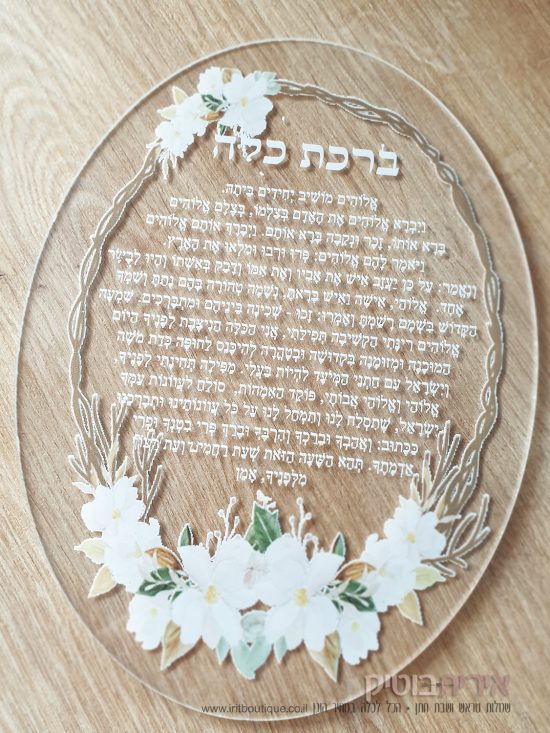 ברכת כלה
אֱלוֹהִים מוֹשִׁיב יְחִידִים בַּיְתָה.
וַיִּבְרָא אֱלוֹהִים אֶת הָאָדָם בְּצַלְמוֹ, בְּצֶלֶם אֱלוֹהִים
בָּרָא אוֹתוֹ, זָכָר וּנְקֵבָה בָּרָא אוֹתָם. וַיְבָרֶךְ אוֹתָם אֱלוֹהִים
וַיֹּאמֶר לָהֶם אֱלוֹהִים: פְּרוּ וּרְבוּ וּמִלְאוּ אֶת הָאָרֶץ.
וְנֶאֱמַר: עַל כֵּן יַעֲזָב אִישׁ אֶת אָבִיו וְאֶת אִמּוֹ וְדָבַק בְּאִשְׁתּוֹ וְהָיוּ לְבָשָׂר
אֶחָד. אֱלוֹהַי, אִישָׁה וְאִישׁ בָּרָאתָ, נְשָׁמָה טְהוֹרָה בָּהֶם נָתַתָּ וְשִׁמְךָ
הַקָּדוֹשׁ בִּשְׁמָם רָשַׁמְתָּ וְאָמַרְתָּ: זָכוּ, שְׁכִינָה בֵּינֵיהֶם וּמִתְבָּרְכִים. שִׁמְעָה
אֱלוֹהִים רִינָּתִי הַקְשִׁיבָה תְּפִילָּתִי. אֲנִי הַכַּלָּה הַנִּיצֶּבֶת לְפָנֶיךָ הַיּוֹם
הַמּוּכָנָה וּמְזוּמֶּנָה בִּקְדוּשָּׁה וּבְטָהֳרָה לְהִיכָּנֵס לַחוּפָּה כְּדַת מֹשֶׁה
וְיִשְׂרָאֵל עִם חֲתָנִי הֶעָתִיד לִהְיוֹת בַּעְלִי. מַפִּילָה תְּחִינָּתִי לְפָנֶיךָ
אֱלוֹהַי וֵאלוֹהֵי אֲבוֹתַי, פּוֹקֵד הָאִמָּהוֹת, סוֹלֵחַ לַעֲווֹנוֹת עַמְּךָ
יִשְׂרָאֵל, שֶׁתִּסְלַח לָנוּ וְתִמְחַל לָנוּ עַל כָּל עֲווֹנוֹתֵינוּ וּתְבָרְכֵנוּ
כַּכָּתוּב: וַאֲהֵבְךָ וּבֵרַכְךָ וְהִרְבֶּךָ וּבֵרַךְ פְּרִי בִטְנְךָ וּפְרִי
אַדְמָתֶךָ. תְּהֵא הַשָּׁעָה הַזֹּאת שְׁעַת רַחֲמִים וְעֵת רָצוֹן
מִלְּפָנֶיךָ, אָמֵן
אירית בוטיק
שמלות טראש ושבת חתן • הכל לכלה במחיר הוגן www.iritboutique.co.il